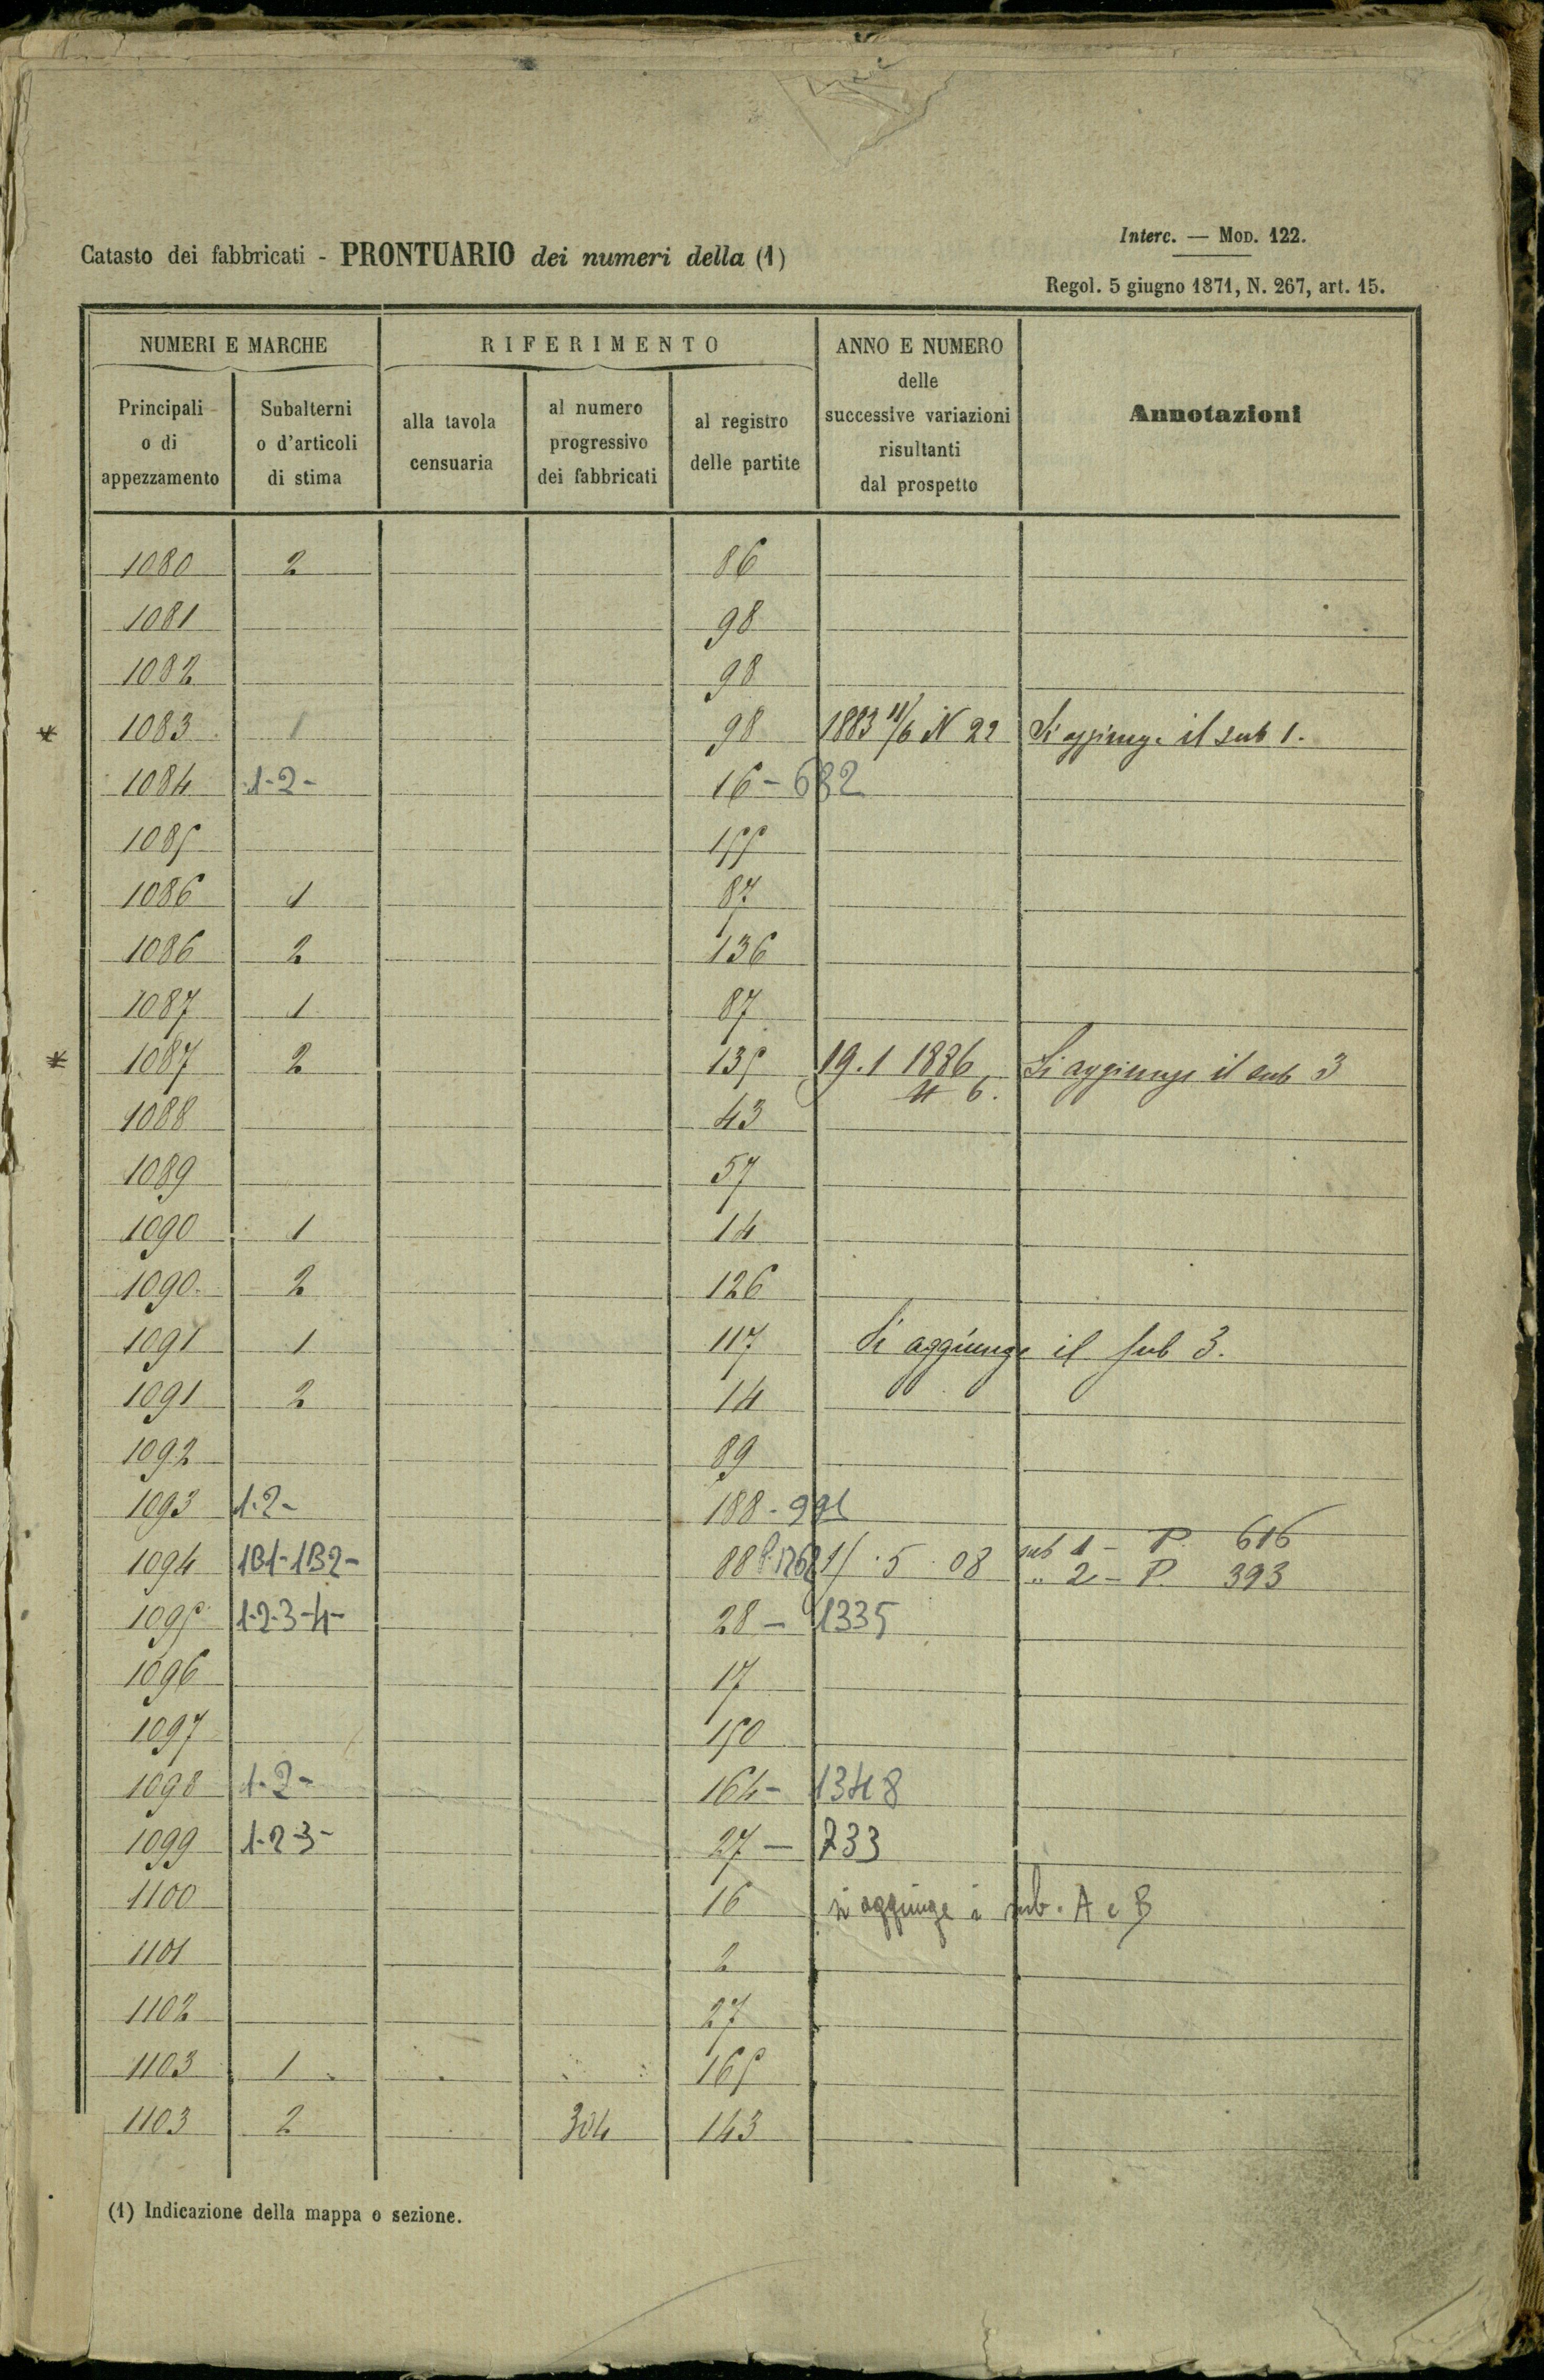 Interc. — MOD. 122.
Catasto dei fabbricati - PRONTUARIO dei numeri della (1)
Regol. 5 giugno 1871, N. 267, art. 15.
NUMERI E MARCHE
RIFERIMENTO
ANNO E NUMERO
delle
successive variazioni
risultanti
dal prospetto
Annotazioni
Principali
o di
appezzamento
Subalterni
o d'articoli
di stima
alla tavola
censuaria
al numero
progressivo
dei fabbricati
al registro
delle partite
1080 2 86
1081 98
1082 98
* 1083 1 98 1883 11/6 N 22 Si aggiunge il sub 1.
1084 1-2- 16 - 682
1085 155
1086 1 87
1086 2 136
1087 1 87
* 1087 2 135 19.1 1886 Si aggiunge il sub 3
N 6.
1088 43
1089 57
1090 1 14
1090 2 126
1091 1 117 Si aggiunge il sub 3.
1091 2 14
1092 89
1093 1-2- 188 -
sub 1 - P. 616
1094 1B1-1B2- 88 5 08 " 2 - P. 393
1095 1-2-3-4- 28 - 1335
1096 17
1097 150
1098 1-2- 164- 1348
1099 1-2-3- 27 - 733
1100 16 si aggiunge i sub. A e B
1101 2
1102 27
1103 1 165
1103 2 304 143
(1) Indicazione della mappa o sezione.